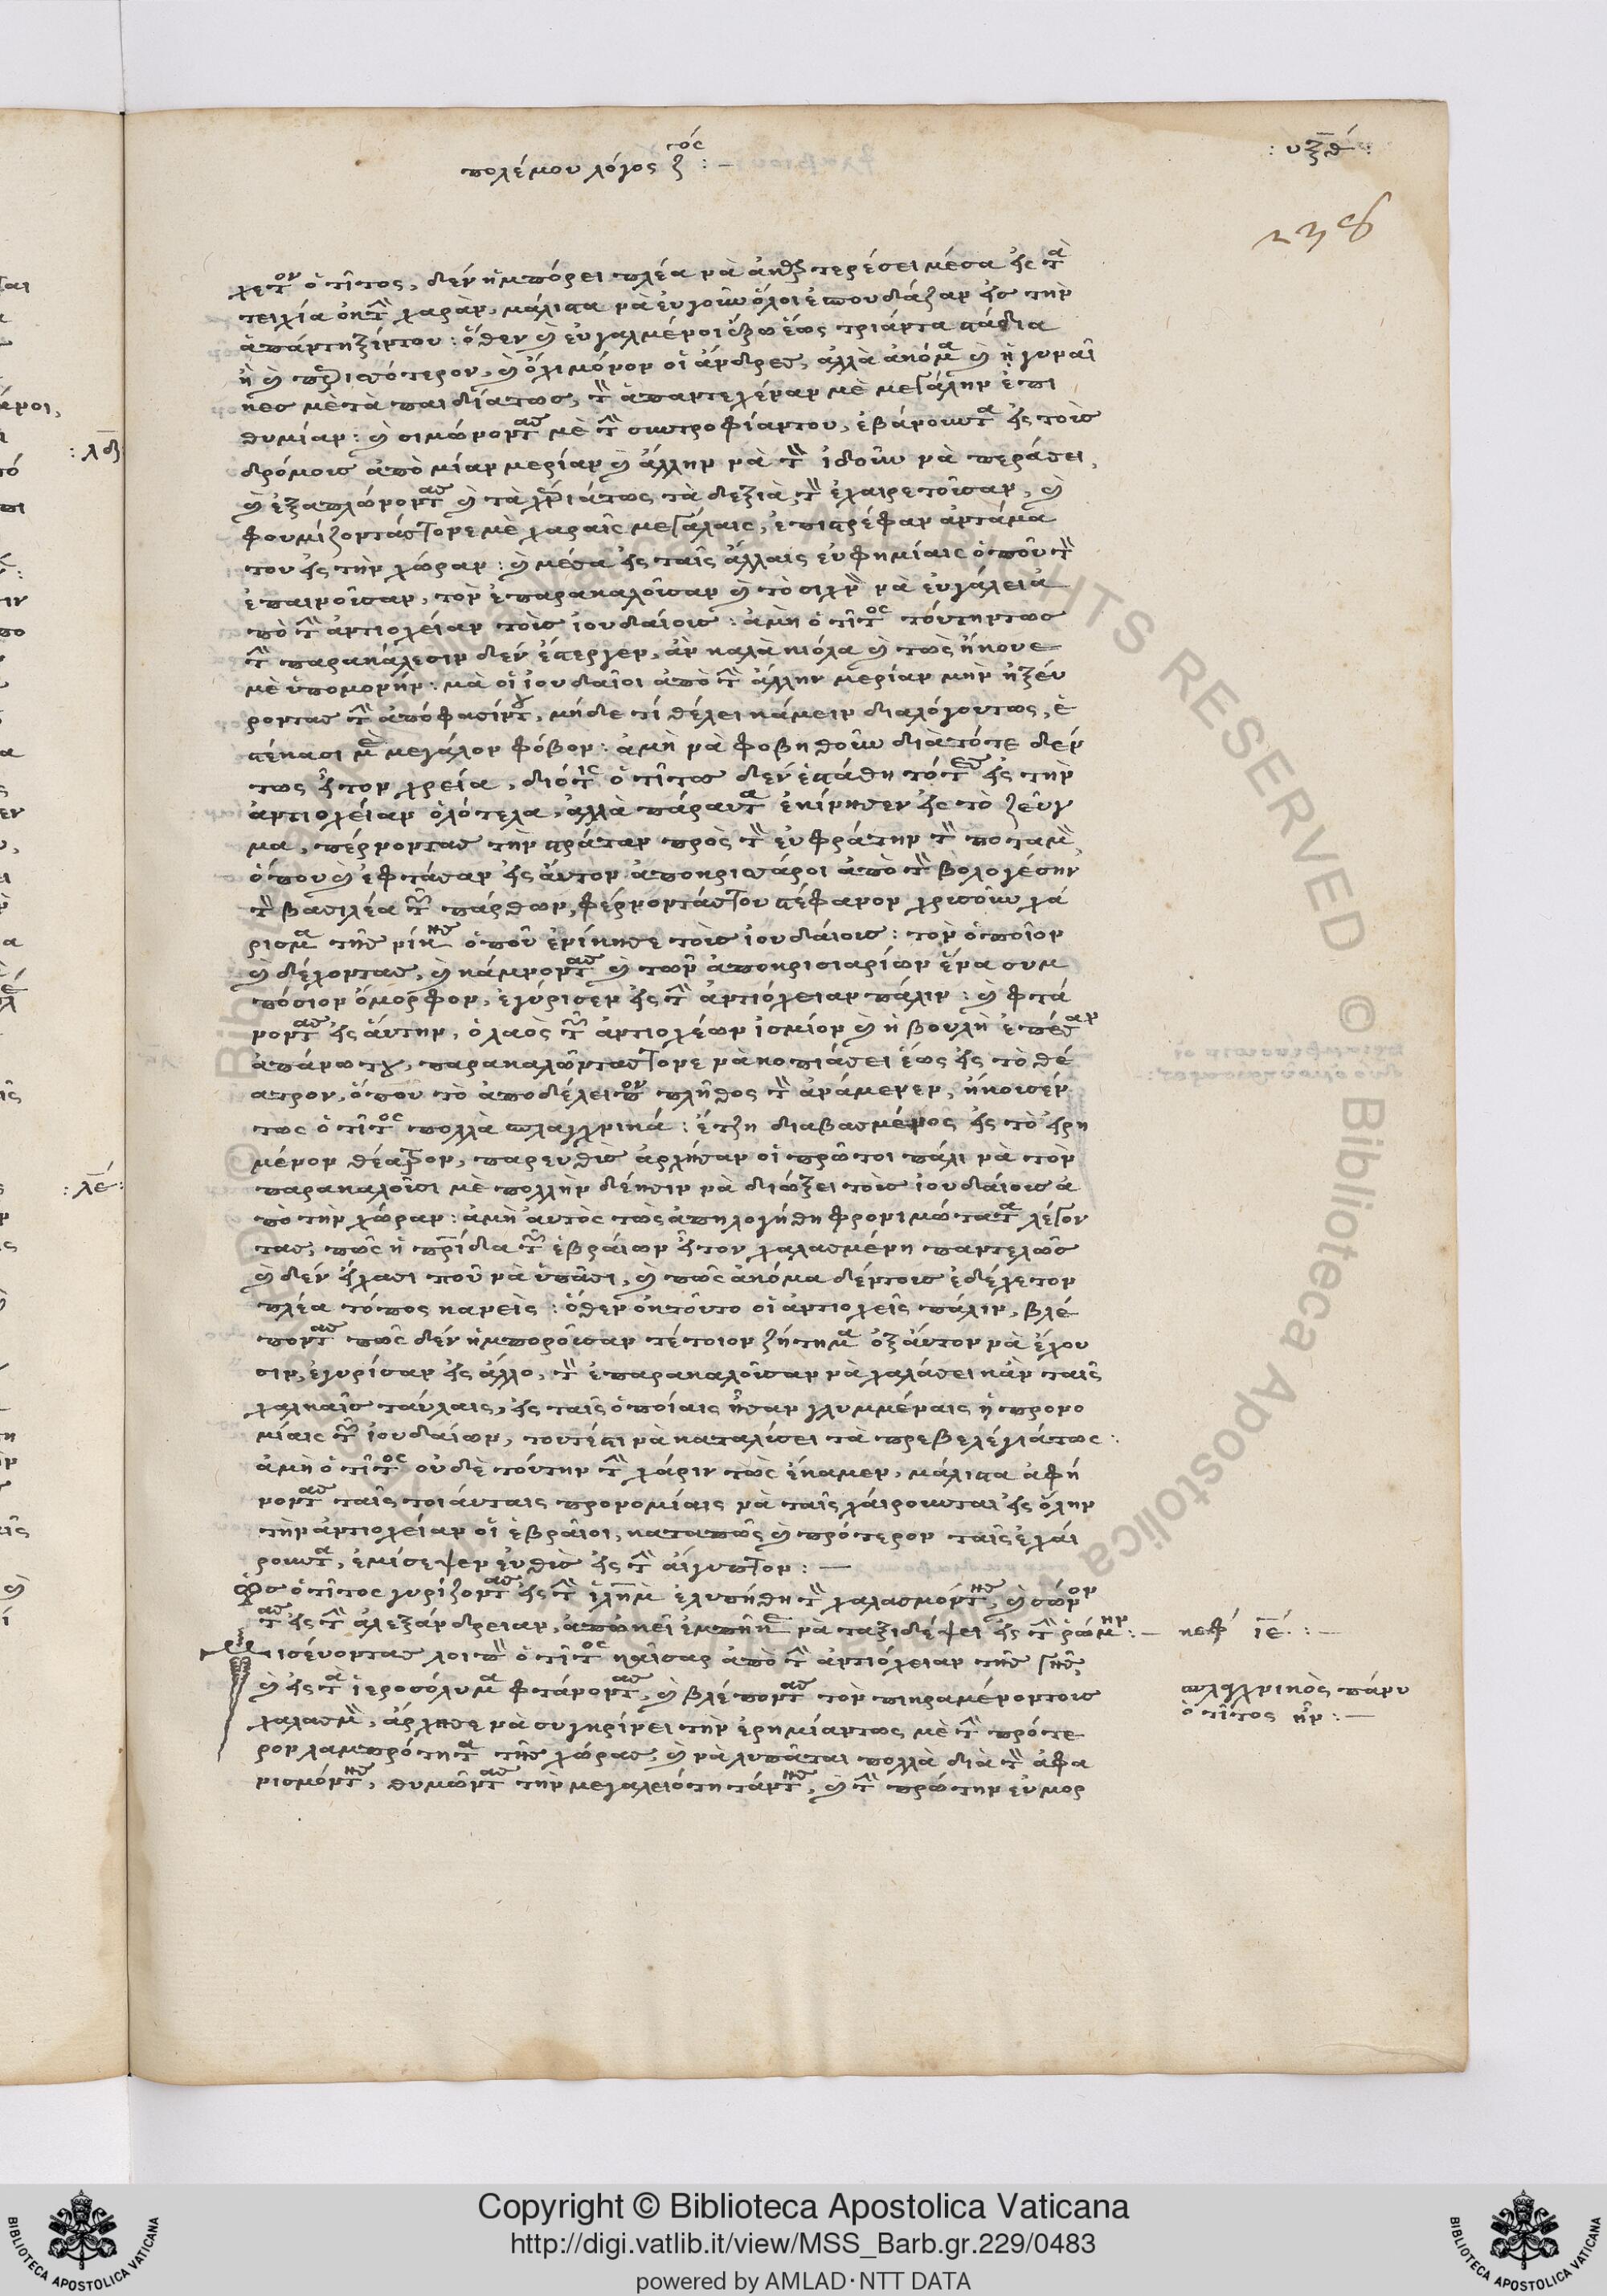 πολέμου λόγος ζ τος : –
: υξθ :
238
χετον ὁ τῖτος, δὲν ἠμπόρει πλέα νὰ μέσα εἰς τὰ
τειχία ἐκ τὴν χαρὰν, μάλιστα νὰ εὐγοῦν ὅλοι ἐσπουδάζαν εἰς τὴν
ἀπάντηξίντου : ὅθεν καὶ εὐγαλμένοι ἔξω ἕως τριάντα στάδια
ἢ καὶ περισσότερον, καὶ ὄχι μόνον οἱ ἄνδρες, ἀλλὰ ἀκόμα καὶ ἡ γυναῖ
κες μὲ τὰ παιδίατως, τὸν ἀπαντεχέναν μὲ μεγάλην ἐπι
θυμίαν : καὶ σιμώνοντας μὲ τὴν συντροφίαντου, ἐβάνουντα εἰς τοὺς
δρόμους ἀπὸ μίαν μερίαν καὶ ἄλλην νὰ τὸν ἰδοῦν νὰ περάσει,
καὶ ἐξαπλώνοντας καὶ τὰ χεριάτως τὰ δεξιὰ, τὸν ἐχαιρετοῦσαν, καὶ
φουμίζοντάςτονε μὲ χαραῖς μεγάλαις, ἐπιστρέφαν ἀντάμα
του εἰς τὴν χώραν : καὶ μέσα εἰς ταῖς ἄλλαις εὐφημίαις ὁποῦ τὸν
ἐπαινοῦσαν, τὸν ἐπαρακαλοῦσαν καὶ τὸ συχνὸν νὰ εὐγάλει ἀ
πὸ τὴν ἀντιοχείαν τοὺς ἰουδαίους : ἀμὴ ὁ τῖτος τούτηντως
τὴν παρακάλεσιν δὲν ἔστεργεν, ἂν καλὰ κιόλα καὶ τὼς ἤκουε
μὲ ὑπομονὴν : μὰ οἱ ἰουδαῖοι ἀπὸ τὴν ἄλλην μερίαν μὴν ἠξεύ
ροντας τὴν ἀπόφασίντου, μήδε τί θέλει κάμειν διαλόγουντως, ἐ
στέκασι μὲ μεγάλον φόβον : ἀμὴ νὰ φοβηθοῦν διὰ τότε δέν
τως ἦτον χρεία, διότις ὁ τῖτος δὲν ἐστάθη τότες εἰς τὴν
ἀντιοχείαν ὁλότελα, ἀλλὰ πάραυτα ἐκίνησεν εἰς τὸ ζεῦγ
μα, πέρνοντας τὴν στράταν πρὸς τὸν εὐφράτην τὸν ποταμὸν,
ὁποῦ καὶ ἐφτάσαν εἰς αὐτὸν ἀποκρισάροι ἀπὸ τὸν βολογέσην
τὸν βασιλέα τῶν πάρθων, φέρνοντάςτου στέφανον χρισοῦν χά
ρισμα τῆς νίκης ὁποῦ ἐνίκησε τοὺς ἰουδαίους : τὸν ὁποῖον
καὶ δέχοντας, καὶ κάμνοντας καὶ τῶν ἀποκρισιαρίων ἕνα συμ
πόσιον ὄμορφον, ἐγύρισεν εἰς τὴν ἀντιόχειαν πάλιν : καὶ φτά
νοντας εἰς αὔτην, ὁ λαὸς τῶν ἀντιοχέων ἰσμίον καὶ ἡ βουλὴ ἐπέσαν
ἀπάνω του, παρακαλῶντάςτονε νὰ κοπιάσει ἕως εἰς τὸ θέ
ατρον, ὁποῦ τὸ ἀποδέλειπον πλῆθος τὸν ἀνάμενεν, ἤκουσέν
τως ὁ τῖτος πολλὰ σπλαγχνικά : ἔτζη διαβασμένος εἰς τὸ εἰρη
μένον θέατρον, παρευθὺς ἀρχήσαν οἱ πρῶτοι πάλι νὰ τὸν
παρακαλοῦσι μὲ πολλὴν δέησιν νὰ διώξει τοὺς ἰουδαίους ἀ
πὸ τὴν χώραν : ἀμὴ αὐτὸς τὼς ἀπηλογήθη φρονιμώτατα λέγον
τας, πῶς ἡ πρίδα τῶν ἑβραίων ἦτον χαλασμένη παντελῶς
καὶ δὲν εἴχασι ποῦ νὰ ὑπᾶσι, καὶ πῶς ἀκόμα δέντους ἐδέχετον
πλέα τόπος κανεὶς : ὅθεν ἐκ τοῦτο οἱ ἀντιοχεῖς πάλιν, βλέ
ποντας πῶς δὲν ἠμποροῦσαν τέτοιον ζήτημα ἐξ αὐτὸν νὰ ἔχου
σιν, ἐγυρίσαν εἰς ἄλλο, τὸν ἐπαρακαλοῦσαν νὰ χαλάσει κἂν ταῖς
χαλκαῖς τάυλαις, εἰς ταῖς ὁποίαις ἦσαν γλυμμέναις ἡ προνο
μίαις τῶν ἰουδαίων, τουτέστι νὰ καταλύσει τὰ πρεβελέγιάτως :
ἀμὴ ὁ τῖτος οὐδὲ τούτην τὴν χάριν τὼς ἔκαμεν, μάλιστα ἀφή
νοντας ταῖς τοιαύταις προνομίαις νὰ ταῖς χάιρουνται εἰς ὅλην
τὴν ἀντιοχείαν οἱ ἑβραῖοι, καταπῶς καὶ πρότερον ταῖς ἐχαί
ρουντα, ἐμίσεψεν εὐθὺς εἰς τὴν αἴγυπτον : —
ὁ τῖτος γυρίζοντας εἰς τὴν ἱλημ ἐλυπήθη τὸν χαλασμόντης, καὶ
τας εἰς τὴν ἀλεξάνδρειαν, ἀπὼ κεῖ ἐμπῆκε νὰ ταξιδέψει εἰς τὴν ῥώμην : – κεφ ιε : –
Μισένοντας λοιπὸν ὁ τῖτος καῖσαρ ἀπὸ τὴν ἀντιόχειαν τῆς
καὶ εἰς τὰ ἱεροσόλυμα φτάνοντας, καὶ βλέποντας τὸν πικραμένοντους
χαλασμὸν, ἄρχησε νὰ συγκρίνει τὴν ἐρημίαντως μὲ τὴν πρότε
ρον λαμπρότητα τῆς χώρας, καὶ νὰ λυπᾶται πολλὰ διὰ τὸν ἀφα
νισμόντης, θυμῶντας τὴν μεγαλειότητάντης, καὶ τὴν πρώτην εὐμορ
σπλαχνικὸς πάνυ
ὁ τῖτος ἦν : —
: λδ :
: λε :
Copyright © Biblioteca Apostolica Vaticana
http://digi.vatlib.it/view/MSS_Barb.gr.229/0483
powered by AMLAD·NTT DATA
BIBLIOTECA APOSTOLICA VATICANA
BIBLIOTECA APOSTOLICA VATICANA